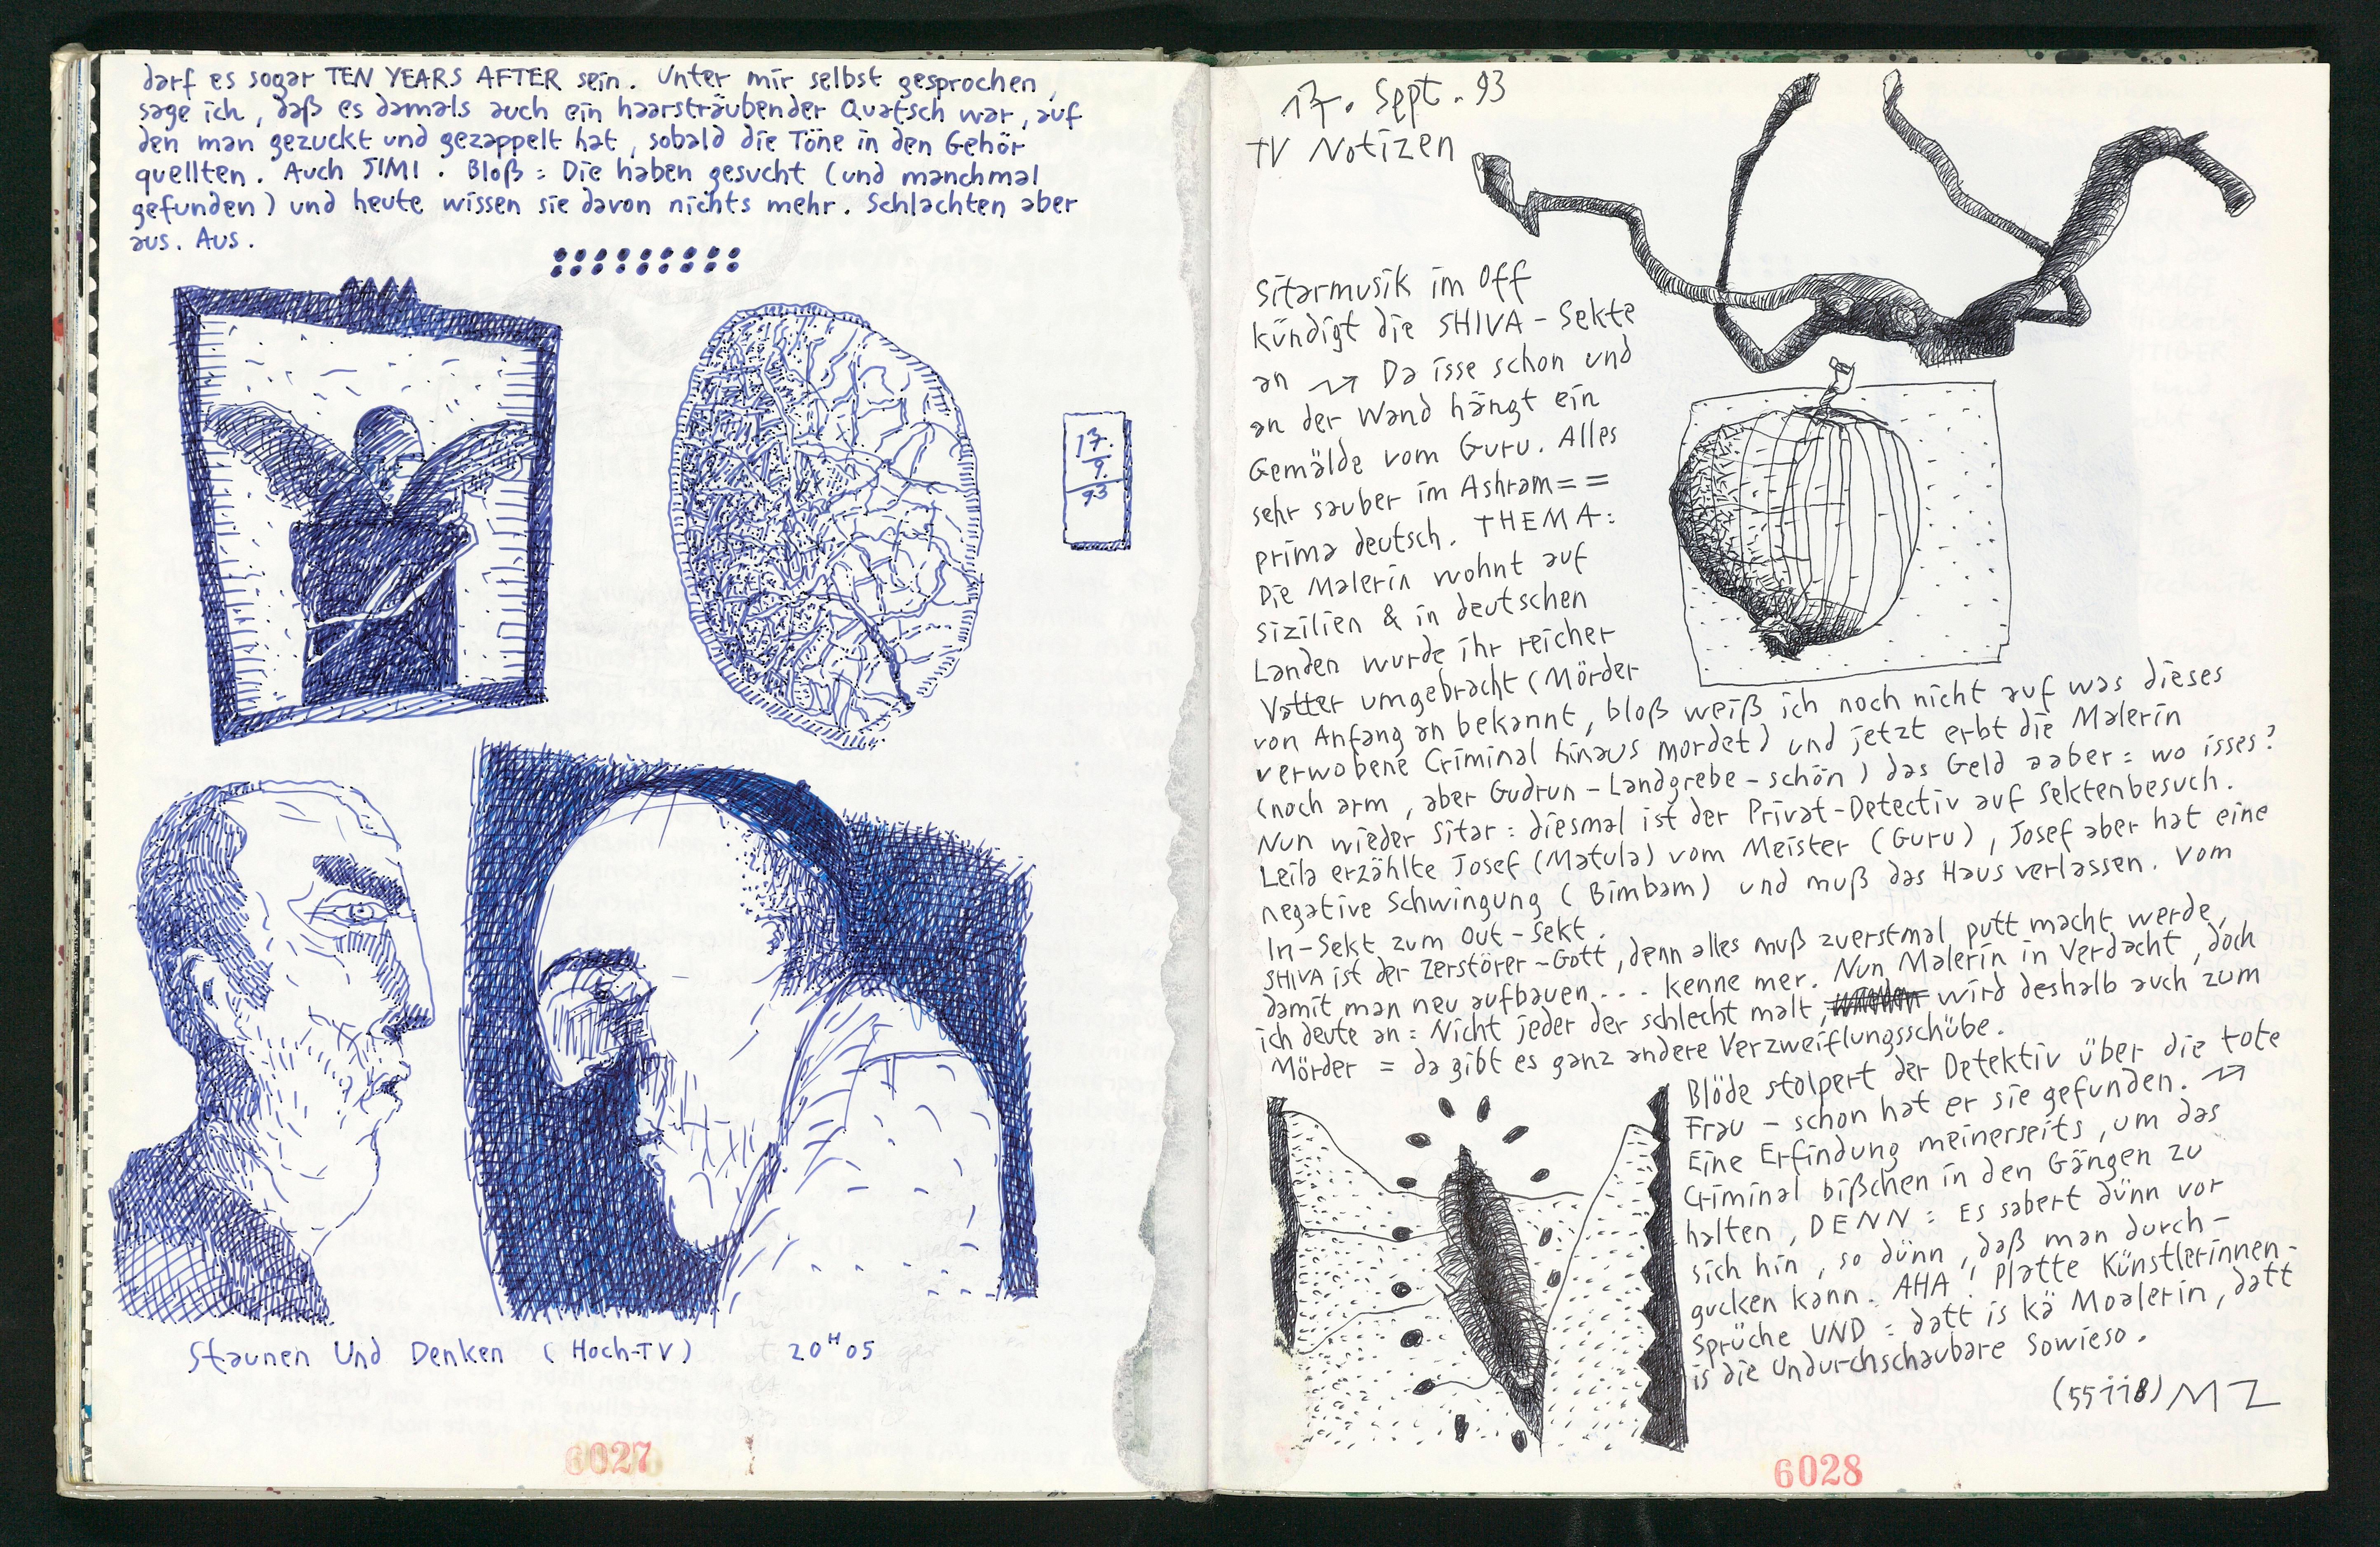 darf es sogar TEN YEARS AFTER sein. Unter mir selbst gesprochen,
sage ich, daß es damals auch ein haarsträubender Quatsch war, auf
den man gezuckt und gezappelt hat, sobald die Töne in den Gehör
quellten. Auch JIMI. Bloß: Die haben gesucht (und manchmal
gefunden) und heute wissen sie davon nichts mehr. Schlachten aber
aus. Aus.
17.
9.
93
Staunen Und Denken (Hoch-TV) 20H05
6027
17. Sept. 93
TV Notizen
Sitarmusik im Off
kündigt die SHIVA-Sekte
an Da isse schon und
an der Wand hängt ein
Gemälde vom Guru. Alles
sehr sauber im Ashram==
prima deutsch. THEMA:
Die Malerin wohnt auf
Sizilien & in deutschen
Landen wurde ihr reicher
Vatter umgebracht (Mörder
von Anfang an bekannt, bloß weiß ich noch nicht auf was dieses
verwobene Criminal hinaus mordet) und jetzt erbt die Malerin
(noch arm, aber Gudrun-Landgrebe-schön) das Geld aaber: wo isses?
Nun wieder Sitar: diesmal ist der Privat-Detectiv auf Sektenbesuch.
Leila erzählte Josef (Matula) vom Meister (Guru), Josef aber hat eine
negative Schwingung (Bimbam) und muß das Haus verlassen. Vom
In-Sekt zum Out-Sekt.
SHIVA ist der Zerstörer-Gott, denn alles muß zuerstmal putt macht werde,
damit man neu aufbauen... kenne mer. Nun Malerin in Verdacht, doch
ich deute an: Nicht jeder der schlecht malt, wird deshalb auch zum
Mörder = da gibt es ganz andere Verzweiflungsschübe.
Blöde stolpert der Detektiv über die tote
Frau - schon hat er sie gefunden.
Eine Erfindung meinerseits, um das
Criminal bißchen in den Gängen zu
halten, DENN: Es sabert dünn vor
sich hin, so dünn, daß man durch-
gucken kann. AHA, platte Künstlerinnen-
Sprüche UND: datt is kä Moalerin, datt
is die Undurchschaubare Sowieso.
(55118) MZ
6028